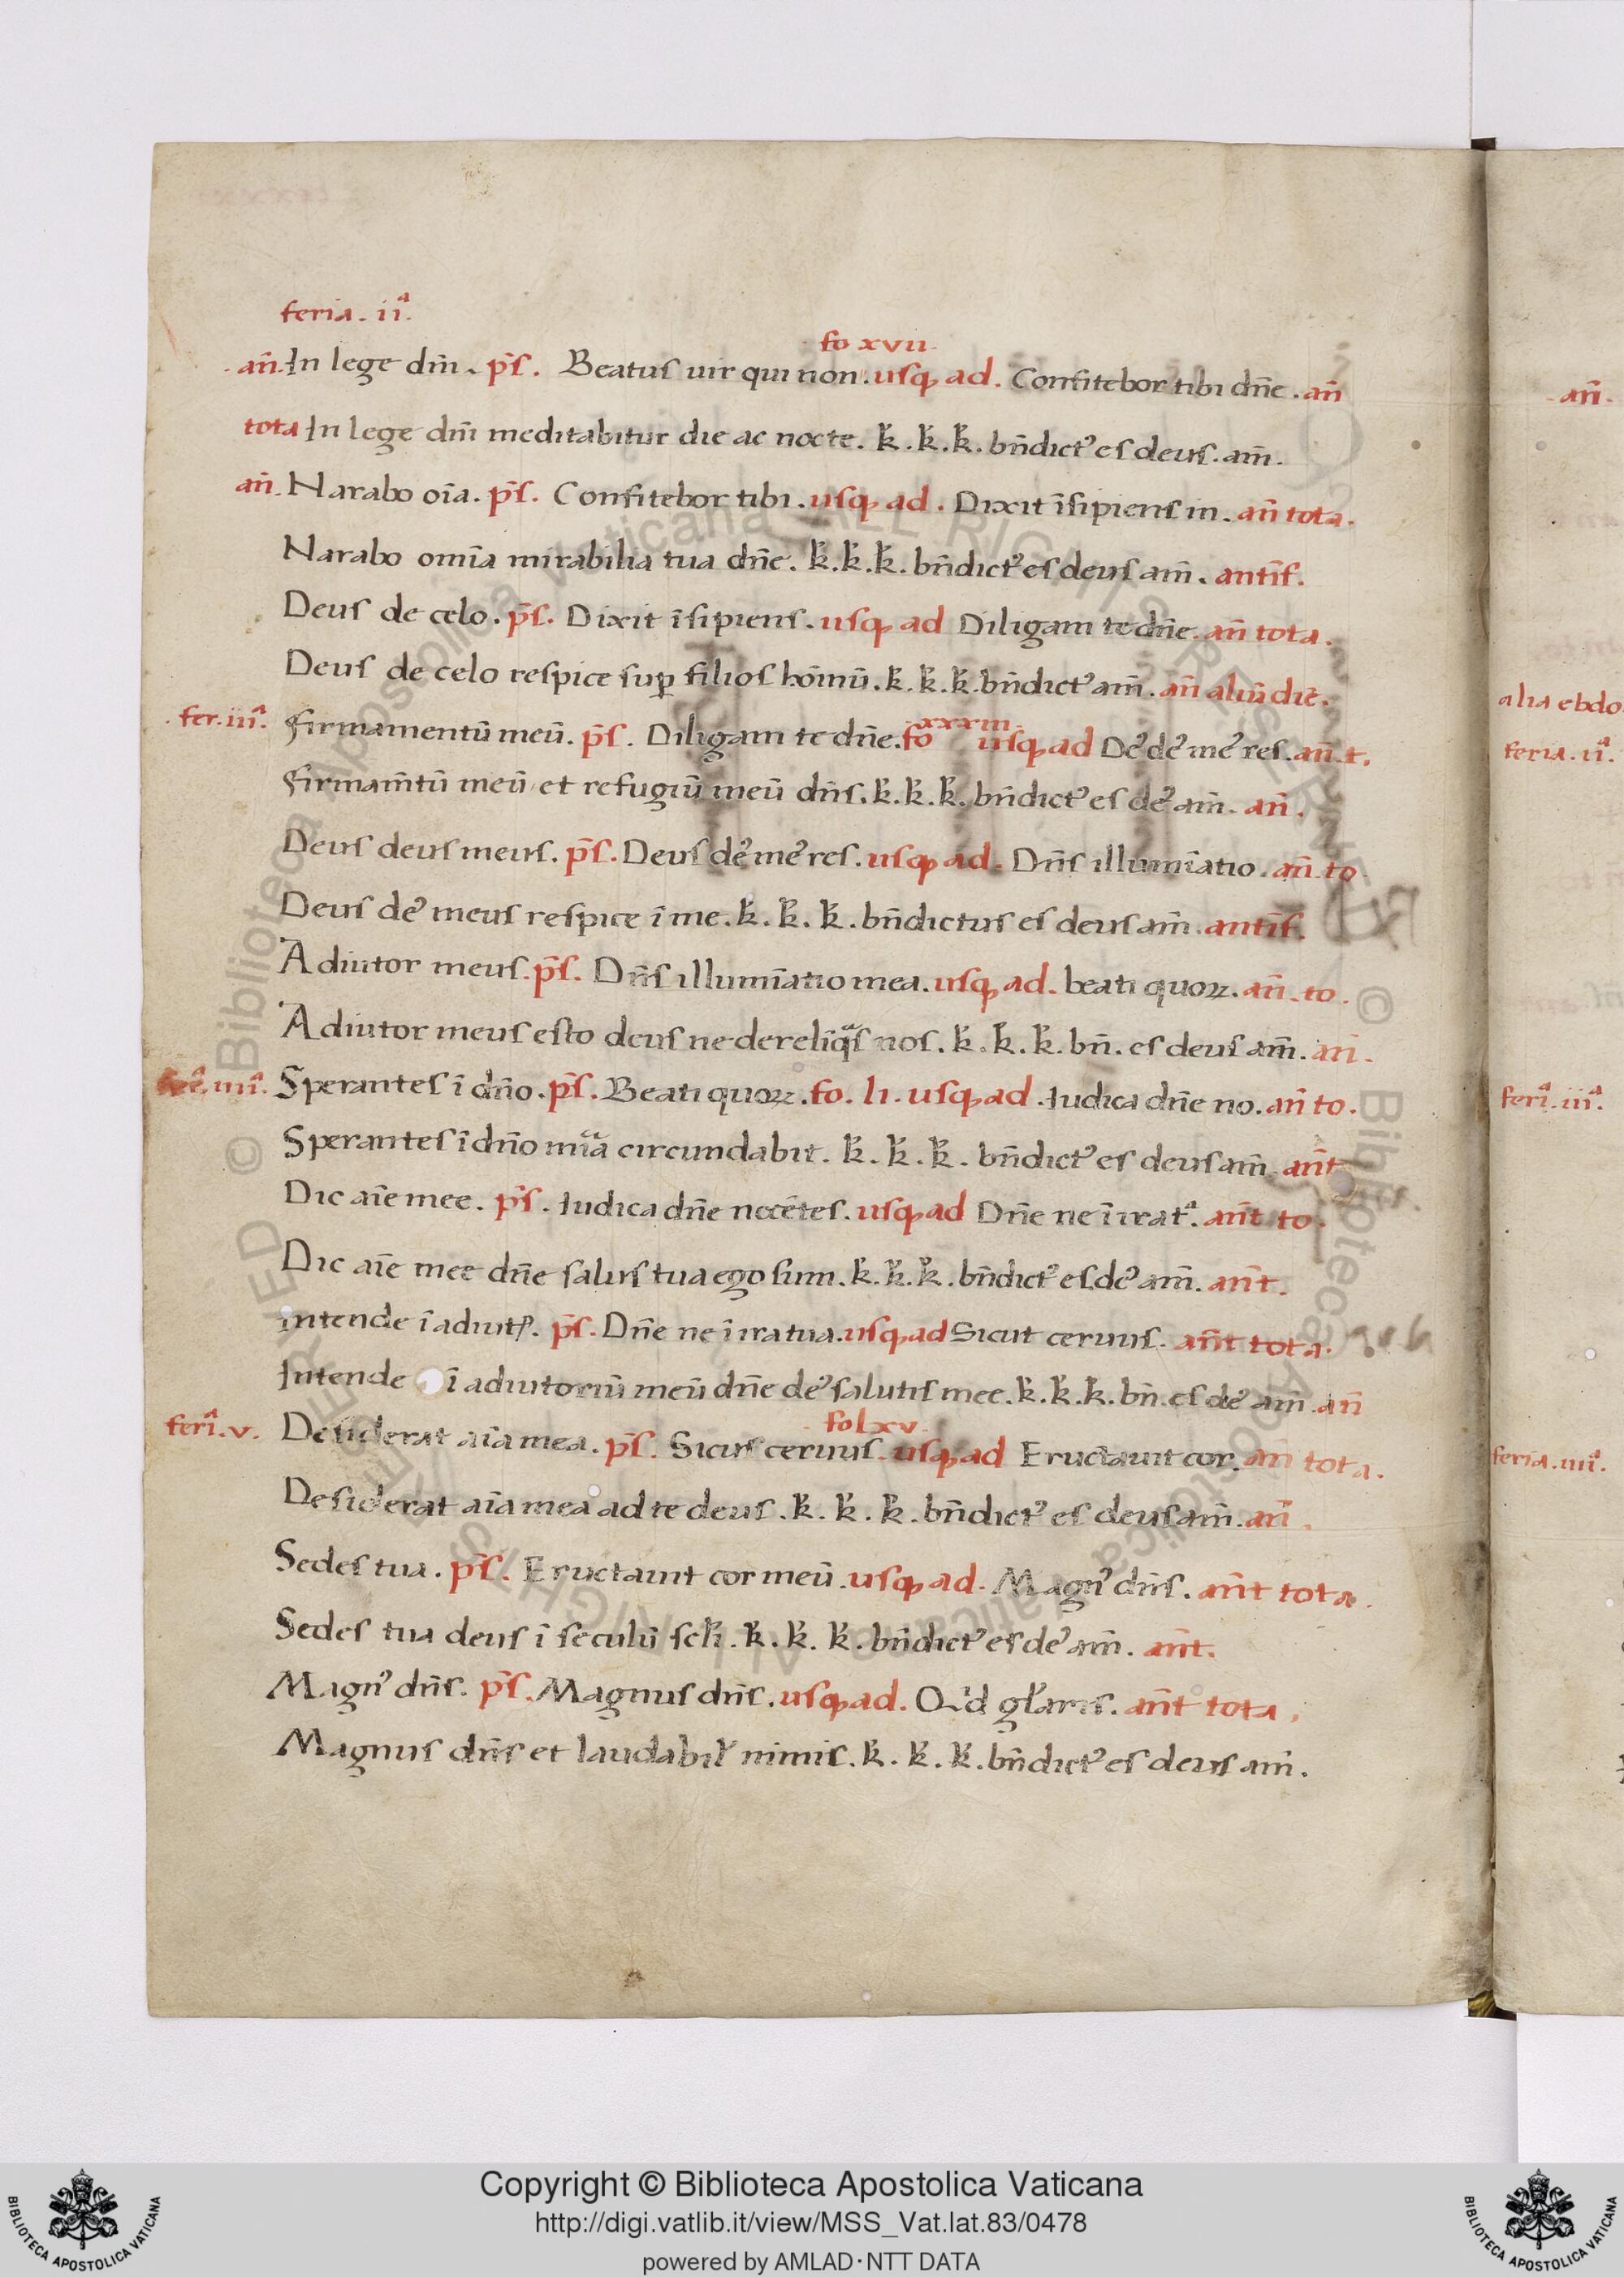 feria. iiª.
fo xvii.
.añ. In lege dm̄. ps̄. Beatus uir qui non. usq; ad. Confitebor tibi dn̄e. añ
tota In lege dm̄ meditabitur die ac nocte. k̄. k̄. k̄. bn̄dict᾽ es deus. am̄.
añ. Narabo oīa. ps̄. Confitebor tibi. usq; ad. Dixit īsipiens in. añ tota.
Narabo omīa mirabilia tua dn̄e. k̄. k̄. k̄. bn̄dict᾽ es deus am̄. antif̄.
Deus de celo. ps̄. Dixit īsipiens. usq; ad Diligam te dn̄e. añ tota.
Deus de celo respice sup̱ filios hoīnū. k̄. k̄. k̄. bn̄dict᾽ am̄. añ aliū diē.
.fer. iiiª. Firmamentū meū. ps̄. Diligam te dn̄e. fo xxxiii. usq; ad De᾽ de᾽ me᾽ res. añ. t.
Firmam̄tū meū et refugiū meū dn̄s. k̄. k̄. k̄. bn̄dict᾽ es de᾽ am̄. añ.
Deus deus meus. ps̄. Deus de᾽ me᾽ res. usq; ad. Dn̄s illumīatio. añ. to.
Deus de᾽ meus respice ī me. k̄. k̄. k̄. bn̄dictus es deus am̄. antif̄.
Adiutor meus. ps̄. Dn̄s illumīatio mea. usq; ad. beati quoꝝ. añ. to.
Adiutor meus esto deus ne dereliqªs nos. k̄. k̄. k̄. bn̄. es deus am̄. añ.
ferª. iiiiª. Sperantes ī dn̄o. ps̄. Beati quoꝝ. fo. li. usq; ad. Iudica dn̄e no. añ to.
Sperantes ī dn̄o mīa circundabit. k̄. k̄. k̄. bn̄dict᾽ es deus am̄. ant̄
Dic aīe mee. ps̄. Iudica dn̄e nocētes. usq; ad Dn̄e ne ī irat ª. ant̄ to.
Dic aīe mee dn̄e salus tua ego sum. k̄. k̄. k̄. bn̄dict᾽ es de᾽ am̄. ant̄.
Intende ī adiutꝶ. ps̄. Dn̄e ne ī ira tua. usq; ad Sicut ceruus. ant̄ tota.
Intende ī adiutoriū meū dn̄e de᾽ salutis mee. k̄. k̄. k̄. bn̄. es de᾽ am̄. añ
fol xv.
feriª. v. Desiderat aīa mea. ps̄. Sicut ceruus. usq; ad Eructauit cor. añ tota.
Desiderat aīa mea ad te deus. k̄. k̄. k̄. bn̄dict᾽ es deus am̄. añ.
Sedes tua. ps̄. Eructauit cor meū. usq; ad. Magn᾽ dn̄s. ant̄ tota.
Sedes tua deus ī seculū scl̄i. k̄. k̄. k̄. bn̄dict᾽ es de᾽ am̄. ant̄.
Magn᾽ dn̄s. ps̄. Magnus dn̄s. usq; ad. Qⁱd gl̄aris. ant̄ tota.
Magnus dn̄s et laudabil̄ nimis. k̄. k̄. k̄. bn̄dict᾽ es deus am̄.
.añ.
alia ebdo
feria. iiª.
feriª. iiiª.
feria. iiiiª.
© Biblioteca Apostolica Vaticana ALL RIGHTS RESERVED
Copyright © Biblioteca Apostolica Vaticana
http://digi.vatlib.it/view/MSS_Vat.lat.83/0478
powered by AMLAD·NTT DATA
BIBLIOTECA APOSTOLICA VATICANA
BIBLIOTECA APOSTOLICA VATICANA